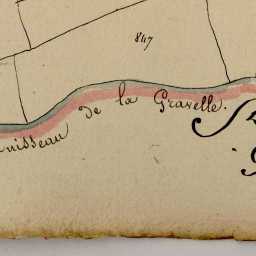 847
Ruisseau de la Gravelle.